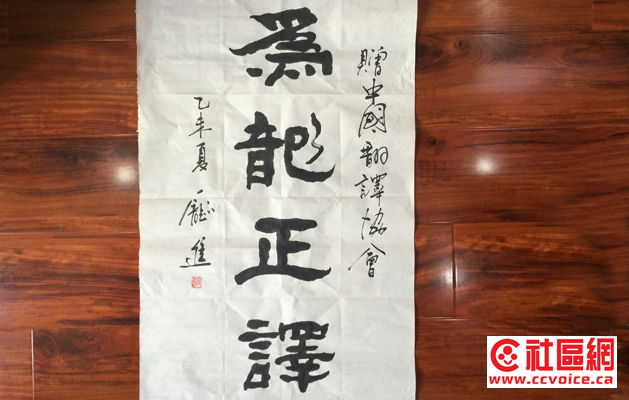 贈中國翻譯協會
爲龍正譯
乙未夏 龐進
社區網
www.ccvoice.ca